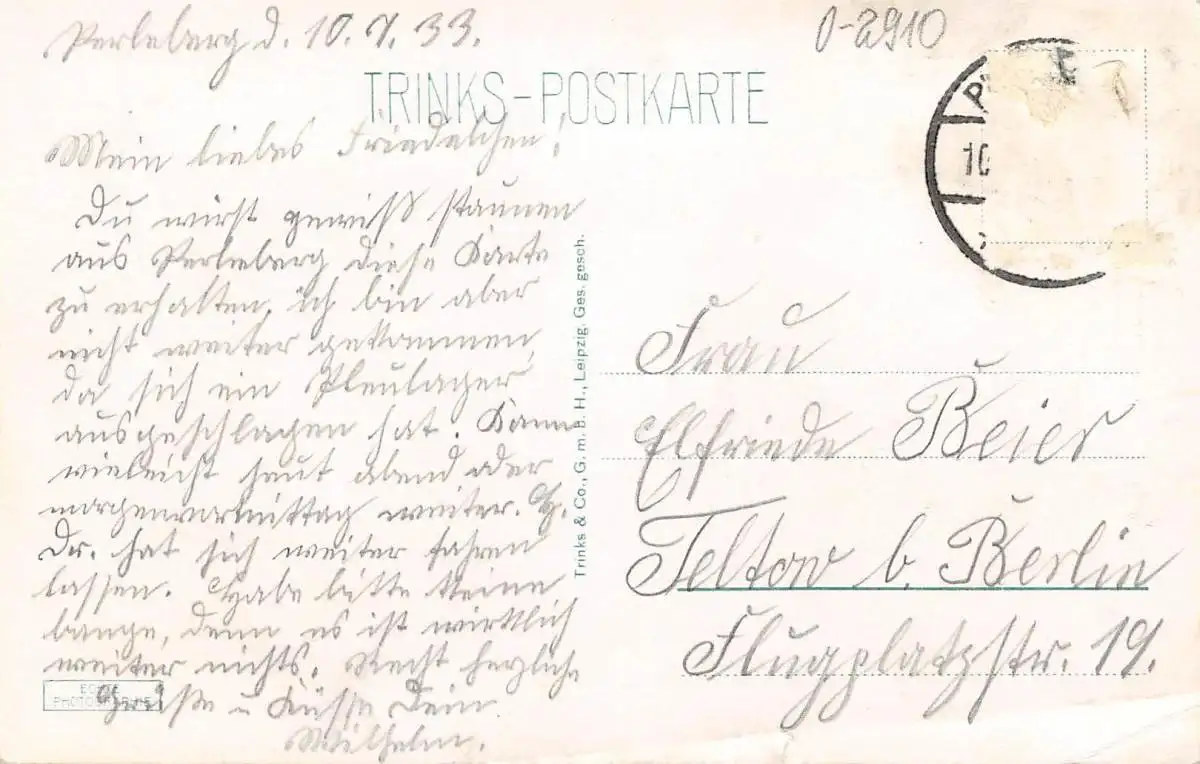 Perleberg d. 10. 7. 33.
0-2910
TRINKS-POSTKARTE
Mein liebes Friedelchen!
Du wirst gewiß staunen
aus Perleberg diese Karte
zu erhalten, ich bin aber
nicht weiter gekommen,
da sich ein Pleulager
ausgeschlagen hat. Kann
vielleicht heut abend oder
morgenvormittag weiter.
Dr. hat sich weiter fahren
lassen. Habe bitte keine
bange, denn es ist wirklich
weiter nichts. Recht herzliche
Grüße u Küsse Dein
Wilhelm.
ECHTE
Trinks & Co., G. m. b. H., Leipzig. Ges. gesch.
P
10
Frau
Elfriede Beier
Teltow b. Berlin
Flugplatzstr. 19.